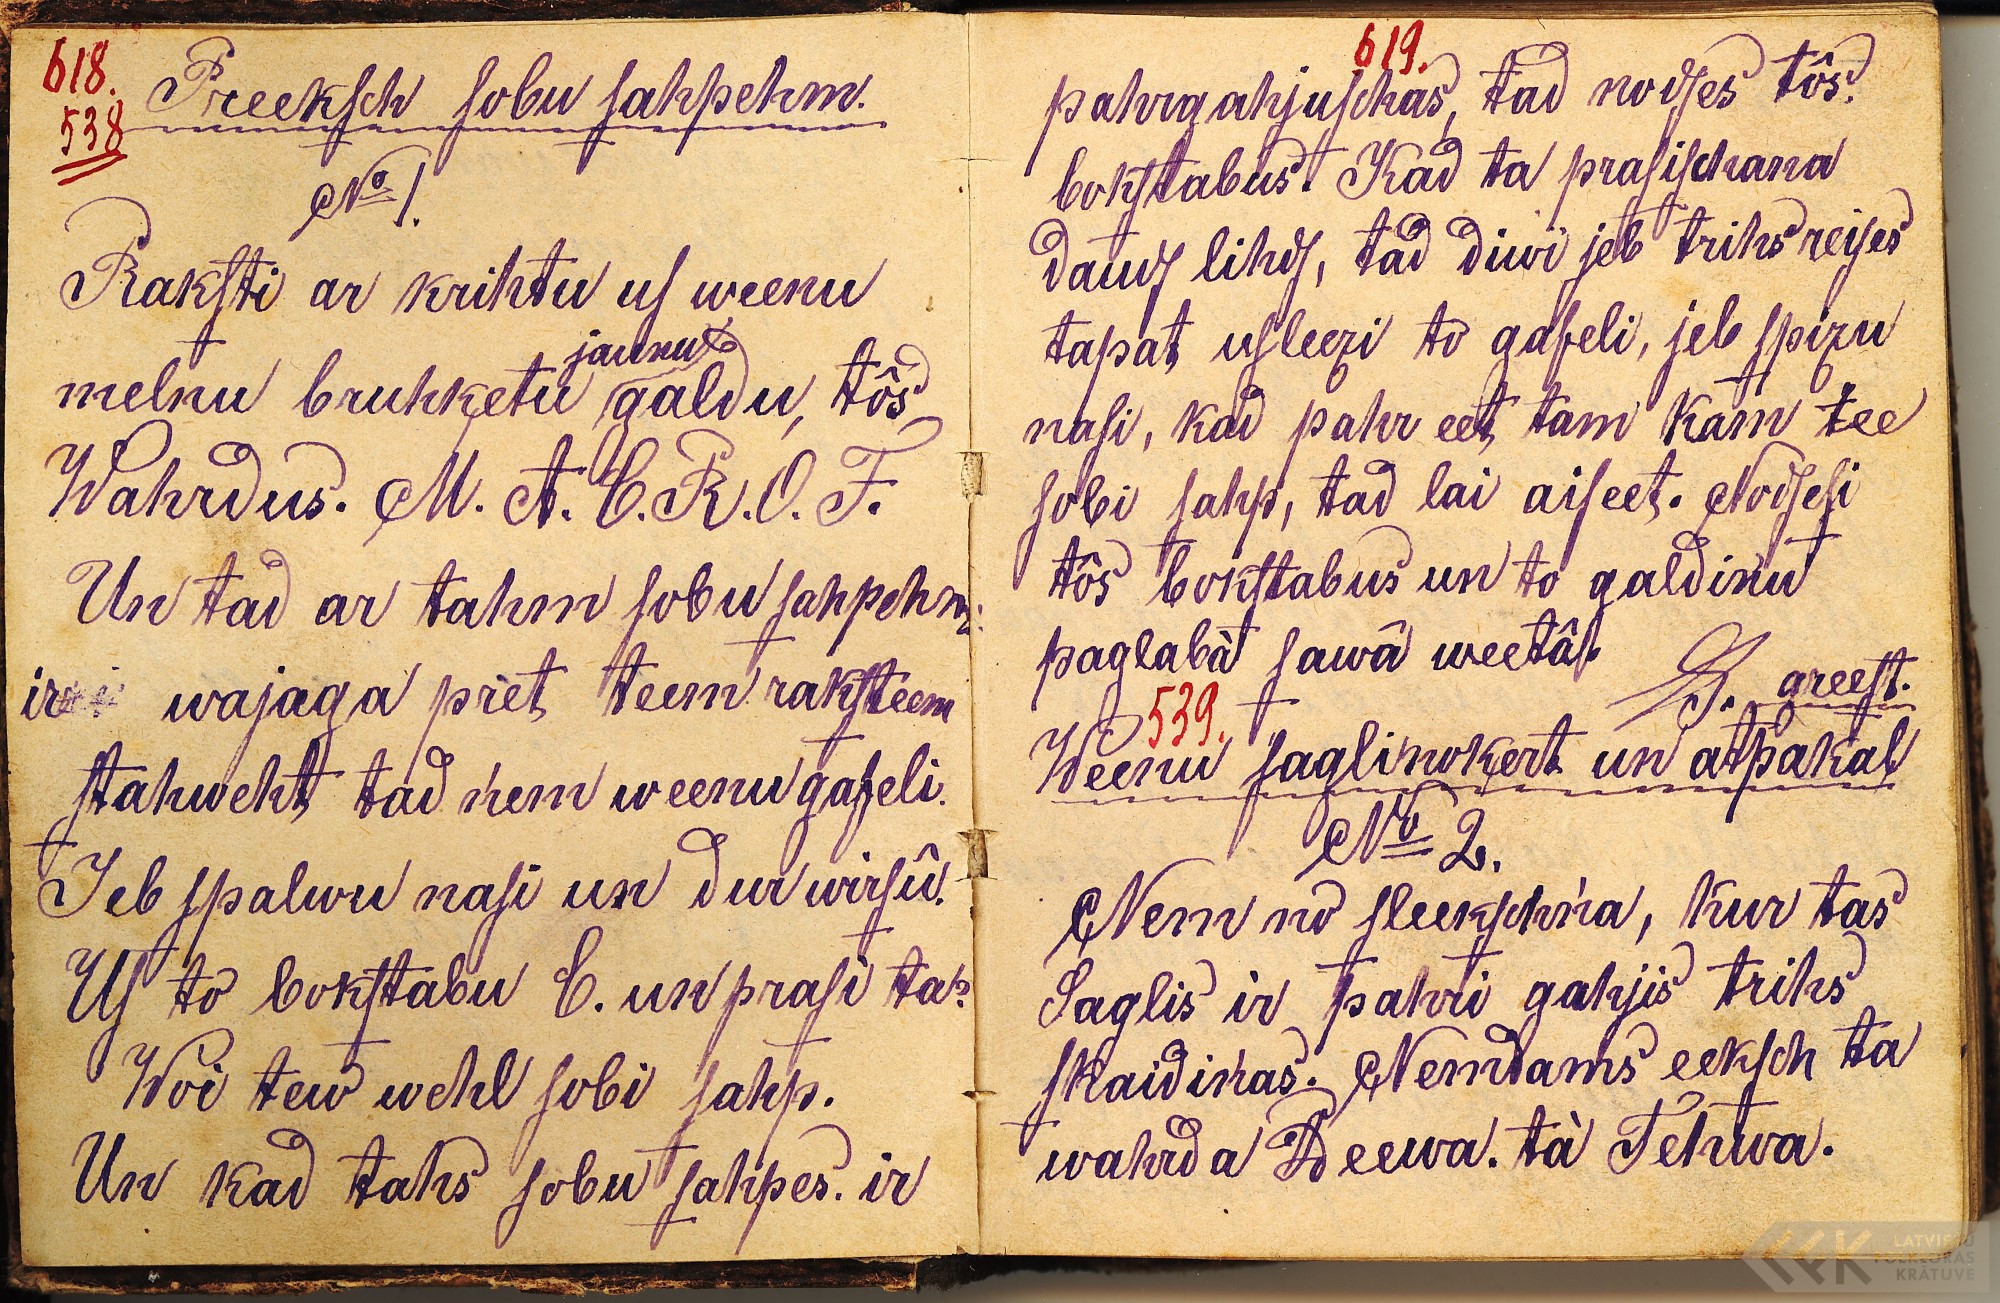 618.
538
Preeksch sobu sahpehm.
№ 1.
Rakſti ar krihtu uſ weenu
jaunu
melnu bruhķetu galdu, tôs
Wahrdus. M. A. C. R. O. F.
Un tad ar tahm sobu sahpehm:
ir wajaga pret teem rakſteem
ſtahweht tad nem weenu gafeli.
Jeb ſpalwu naſi un dur wirſû.
Uſ to bokſtabu C. un praſi tah:
Woi tew wehl ſobi ſahp.
Un kad tahs ſobu ſahpes. ir
619.
pahrgahjuſchas, tad nodſes tôs.
bokſtabus. Kad ta praſiſchana
daudſ lihdſ, tad diwi jeb trihs reiſes
tapat uſleezi to gafeli, jeb ſpizu
naſi, kad pahr eet tam kam tee
ſobi ſahp, tad lai aiſeet. Nodſeſi
tôs bokſtabus un to galdinu
paglabà ſawâ weetâ.
greeſt.
539.
Weenu ſagli nokert un atpakaļ
№ 2.
Nem no ſleekſchņa, kur tas
Saglis ir pahri gahjis trihs
ſkaidinas. Nemdams eekſch ta
wahrda Deewa. tà Tehwa.
LATVIEŠU
FOLKLORAS
KRĀTUVE